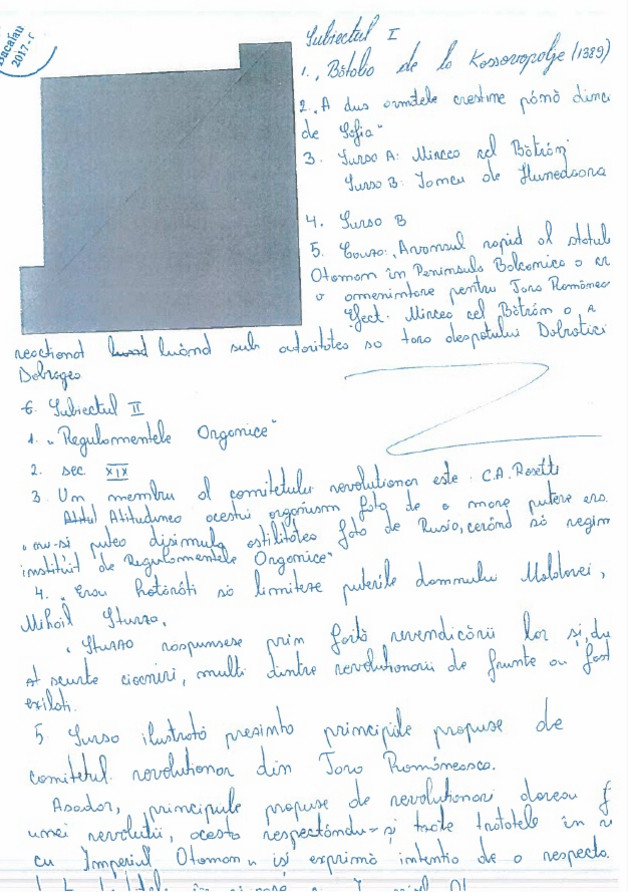 Bacalau
2017 - r
Subiectul I
1. „Bătălia de la Kossovopolje (1389)
2. „A dus armatele creștine până dinco
de Sofia"
3. Sursa A: Mircea cel Bătrân
Sursa B: Iancu de Hunedoara
4. Sursa B
5. Cauza: „Avansul rapid al statul
Otoman în Peninsula Balcanica a cr
o amenintare pentru Tara Româneas
Efect: Mircea cel Bătrân a
reactionat luând sub autoritatea sa tara despotului Dobrotici
Dobrogea
6. Subiectul II
1. „Regulamentele Organice"
2. sec XIX
3. Un membru al comitetului revolutionar este C.A. Rosetti
Atitudinea acestui organism fata de o mare putere era
„nu-si putea disimula ostilitatea fata de Rusia, cerând să regim
instituit de Regulamentele Organice"
4. „Erau hotărâti să limiteze puterile domnului Moldovei,
Mihail Sturza,
„Sturza raspunsese prin forță revendicării lor și, du
scurte ciocniri, multi dintre revolutionarii de frunte au fost
exilati.
5. Sursa ilustrată prezinta principiile propuse de
comitetul revolutionar din Tara Româneasca.
Asadar, principiile propuse de revolutionari doreau f
unei revolutii, acesta respectându-și toate tratatele în v
cu Imperiul Otoman „își exprimă intentia de a respecta